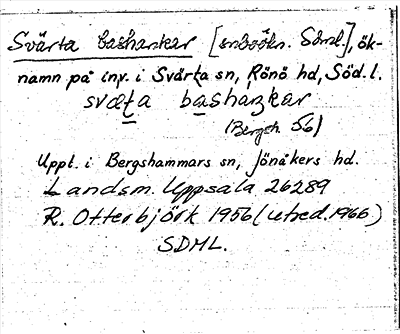 Svärta bashankar [inbsökn. Söml.], ök-
namn på inv. i Svärta sn, Rönö hd, Söd. l.
sværta bashaŋkar
(Bergsh. 56)
Uppt. i Bergshammars sn, Jönåkers hd.
Landsm. Uppsala 26289
R. Otterbjörk 1956 (utred. 1966)
SDML.